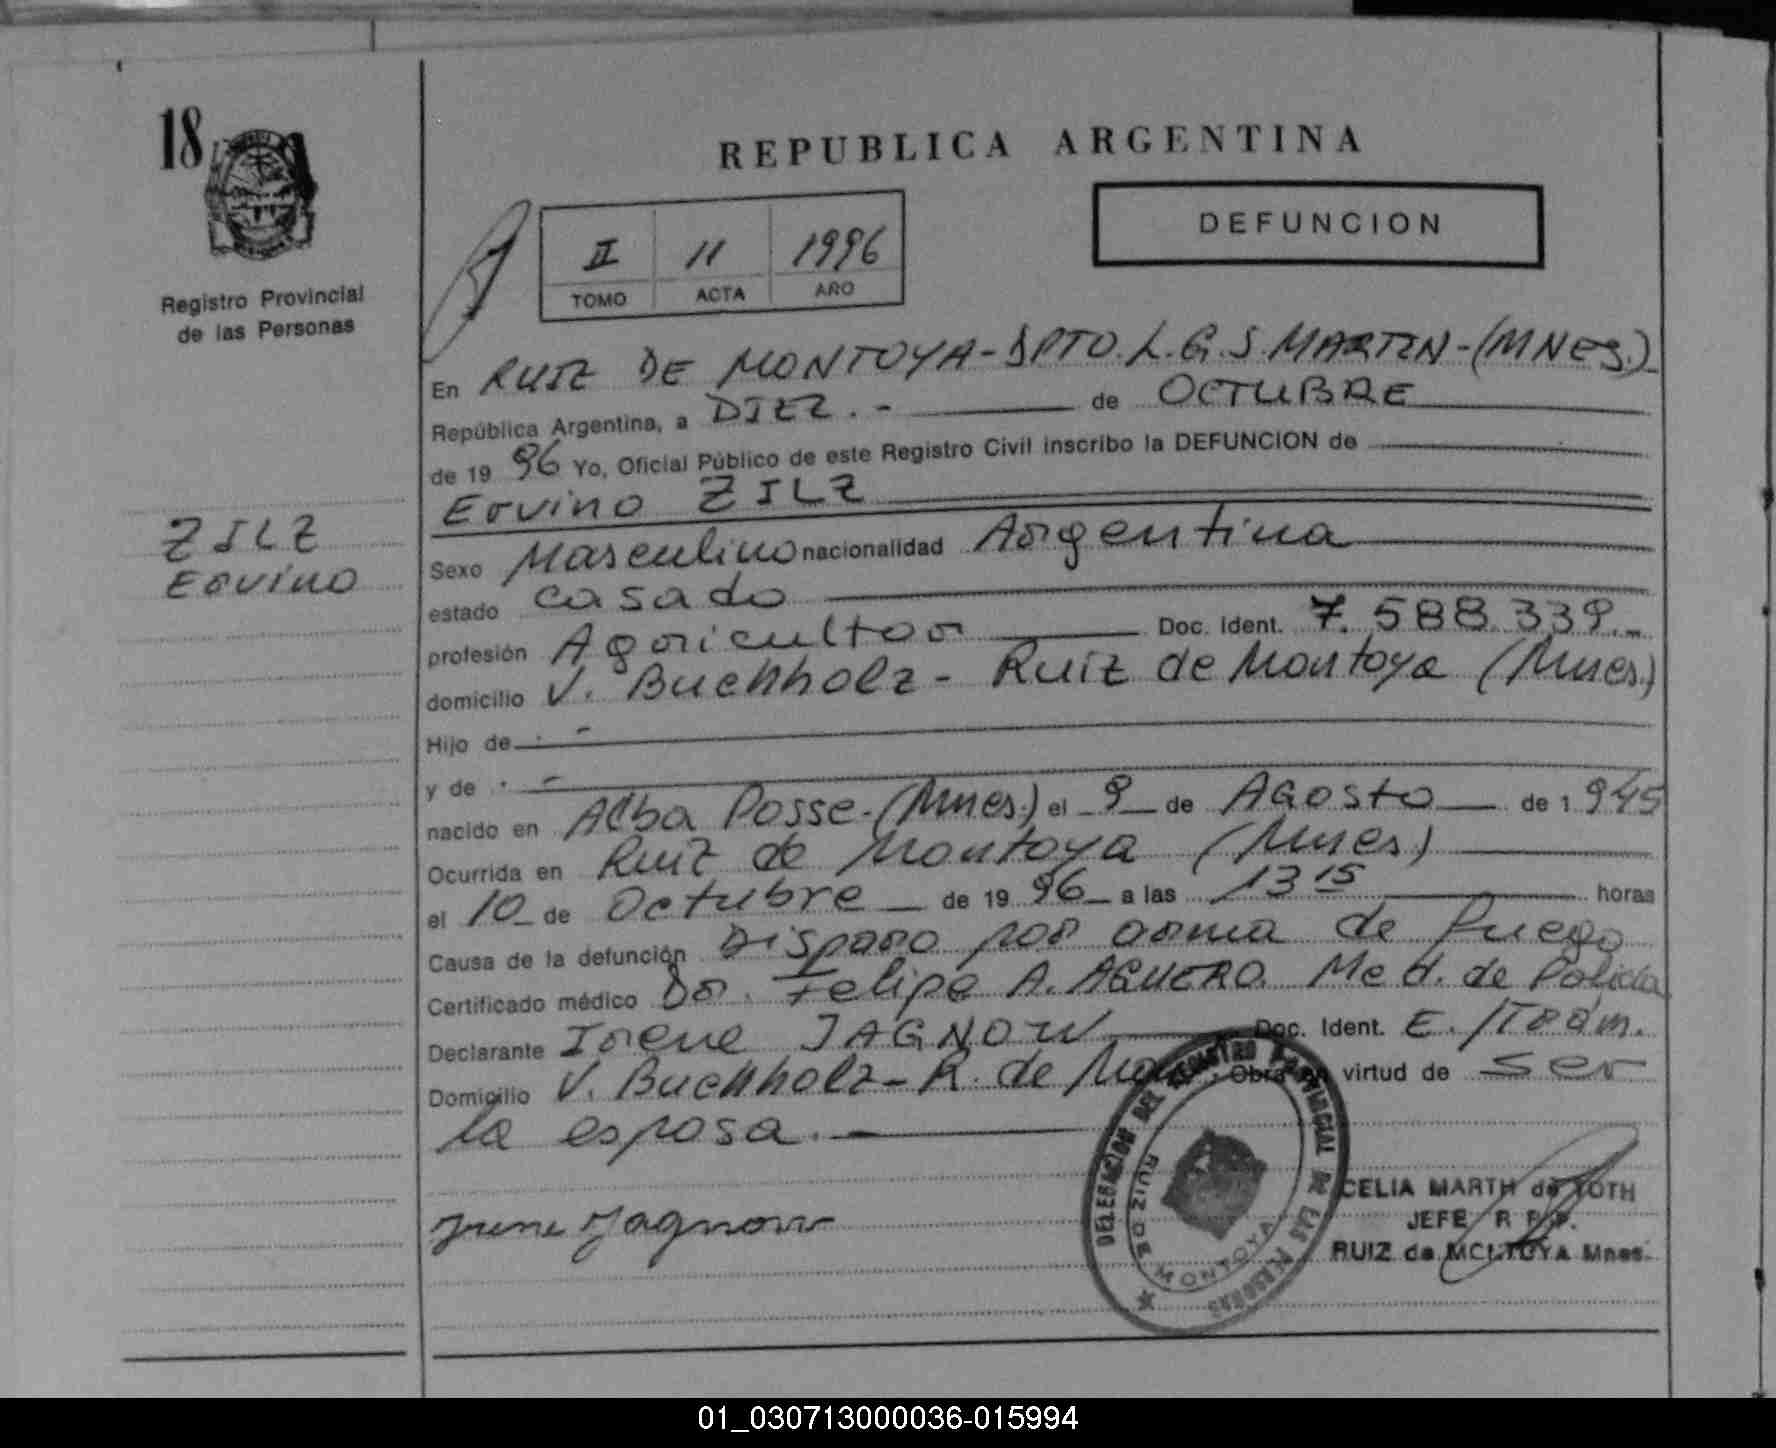 18
REPUBLICA ARGENTINA
DEFUNCION
II 11 1996
TOMO ACTA AÑO
Registro Provincial
de las Personas
En RUIZ DE MONTOYA-DPTO.L.G.S.MARTIN-(MNES.)
República Argentina, a DIEZ.- de OCTUBRE
de 19 96 Yo, Oficial Público de este Registro Civil inscribo la DEFUNCION de
Ervino ZILZ
ZILZ
Ervino
Sexo Masculino nacionalidad Argentina
estado casado
profesión Agricultor Doc. Ident. 7.588.339.-
domicilio V. Buchholz - Ruiz de Montoya (Mnes.)
Hijo de . -
y de . -
nacido en Alba Posse-(Mnes.) el 9 de Agosto de 1 945
Ocurrida en Ruiz de Montoya (Mnes)
el 10 de Octubre de 19 96 a las 13 15 horas
Causa de la defunción Disparo por arma de fuego
Certificado médico Dr. Felipe A. AGUERO. Med. de Policia
Declarante Irene JAGNOW Doc. Ident. E. /Trám.
Domicilio V. Buchholz-R. de Mo Obra en virtud de ser
la esposa.-
Irene Jagnow
DELEGACION DEL REGISTRO PROVINCIAL DE LAS PERSONAS
RUIZ DE MONTOYA
CELIA MARTH de TOTH
JEFE R.P.P.
RUIZ de MONTOYA Mnes.
01_030713000036-015994